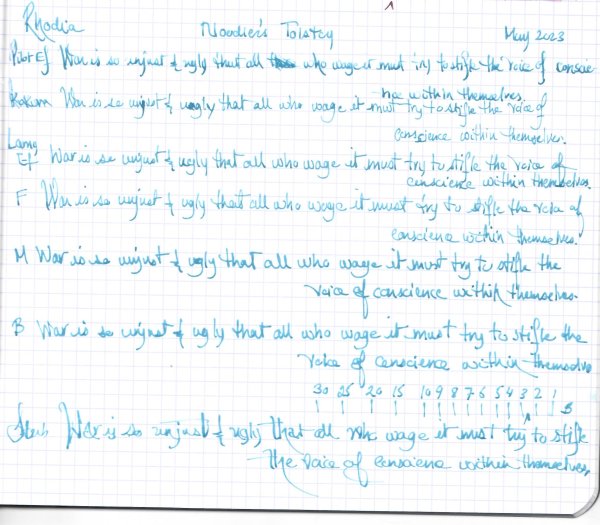 Rhodia Noodler's Tolstoy May 2023
Pilot Ef War is so unjust & ugly that all who wage it must try to stifle the voice of conscie-
nce within themselves.
Kakuno War is so unjust & ugly that all who wage it must try to stifle the voice of
conscience within themselves.
Lamy
Ef War is so unjust & ugly that all who wage it must try to stifle the voice of
conscience within themselves.
F War is so unjust & ugly that all who wage it must try to stifle the voice of
conscience within themselves.
M War is so unjust & ugly that all who wage it must try to stifle the
voice of conscience within themselves.
B War is so unjust & ugly that all who wage it must try to stifle the
voice of conscience within themselves
30 25 20 15 10 9 8 7 6 5 4 3 2 1
s
War is so unjust & ugly that all who wage it must try to stifle
the voice of conscience within themselves.